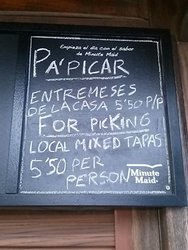 Empieza el día con el sabor
de Minute Maid
PA'PICAR
ENTREMESES
DE LA CASA 5'50 P/P
FOR PICKING
LOCAL MIXED TAPAS
5'50 PER
PERSON
Minute
Maid